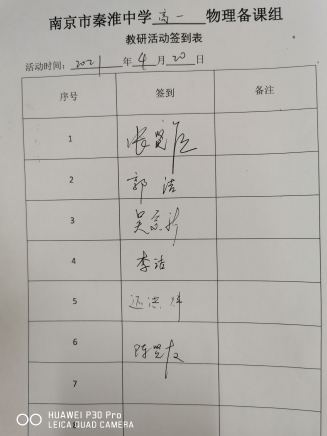 南京市秦淮中学 高一 物理备课组
教研活动签到表
活动时间: 2021 年 4 月 20 日
序号 签到 备注
1 张
2 郭洁
3 吴
4 李洁
5
6 陈
7
8
HUAWEI P30 Pro
LEICA QUAD CAMERA